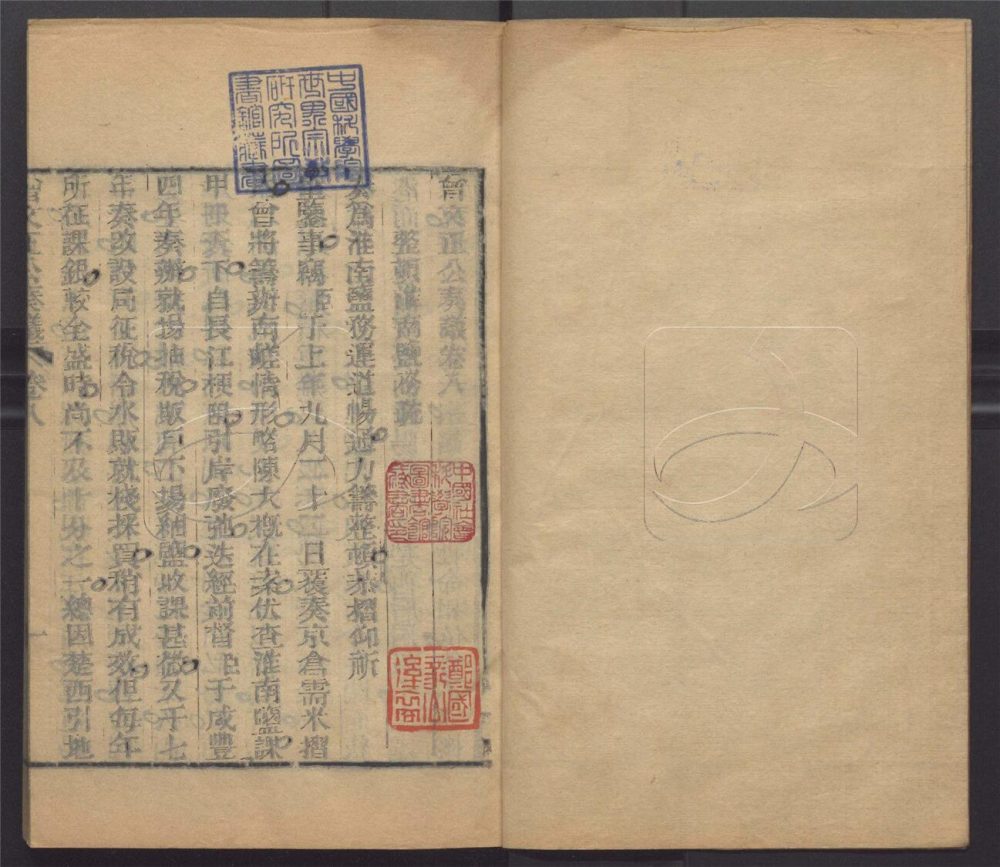 曾文正公奏議卷八
整頓淮南鹽務疏
奏爲淮南鹽務運道暢通力籌整頓恭摺仰祈
聖鑒事竊臣於上年九月二十三日覆奏京倉需米摺
曾將籌辦南鹺情形略陳大概在案伏查淮南鹽課
甲天下自長江梗阻引岸廢弛迭經前督臣于咸豐
四年奏辦就場抽稅販戶不踴鹽收課甚微又于七
年奏改設局征稅令水販就棧採買稍有成效但每年
所征課銀較全盛時尚不及十分之一總因楚西引地
曾文正公奏議 卷八
一
中國科學院
世界宗教
研究所圖
書館藏書
中國社會
科學院
圖書館
藏書
鄭國